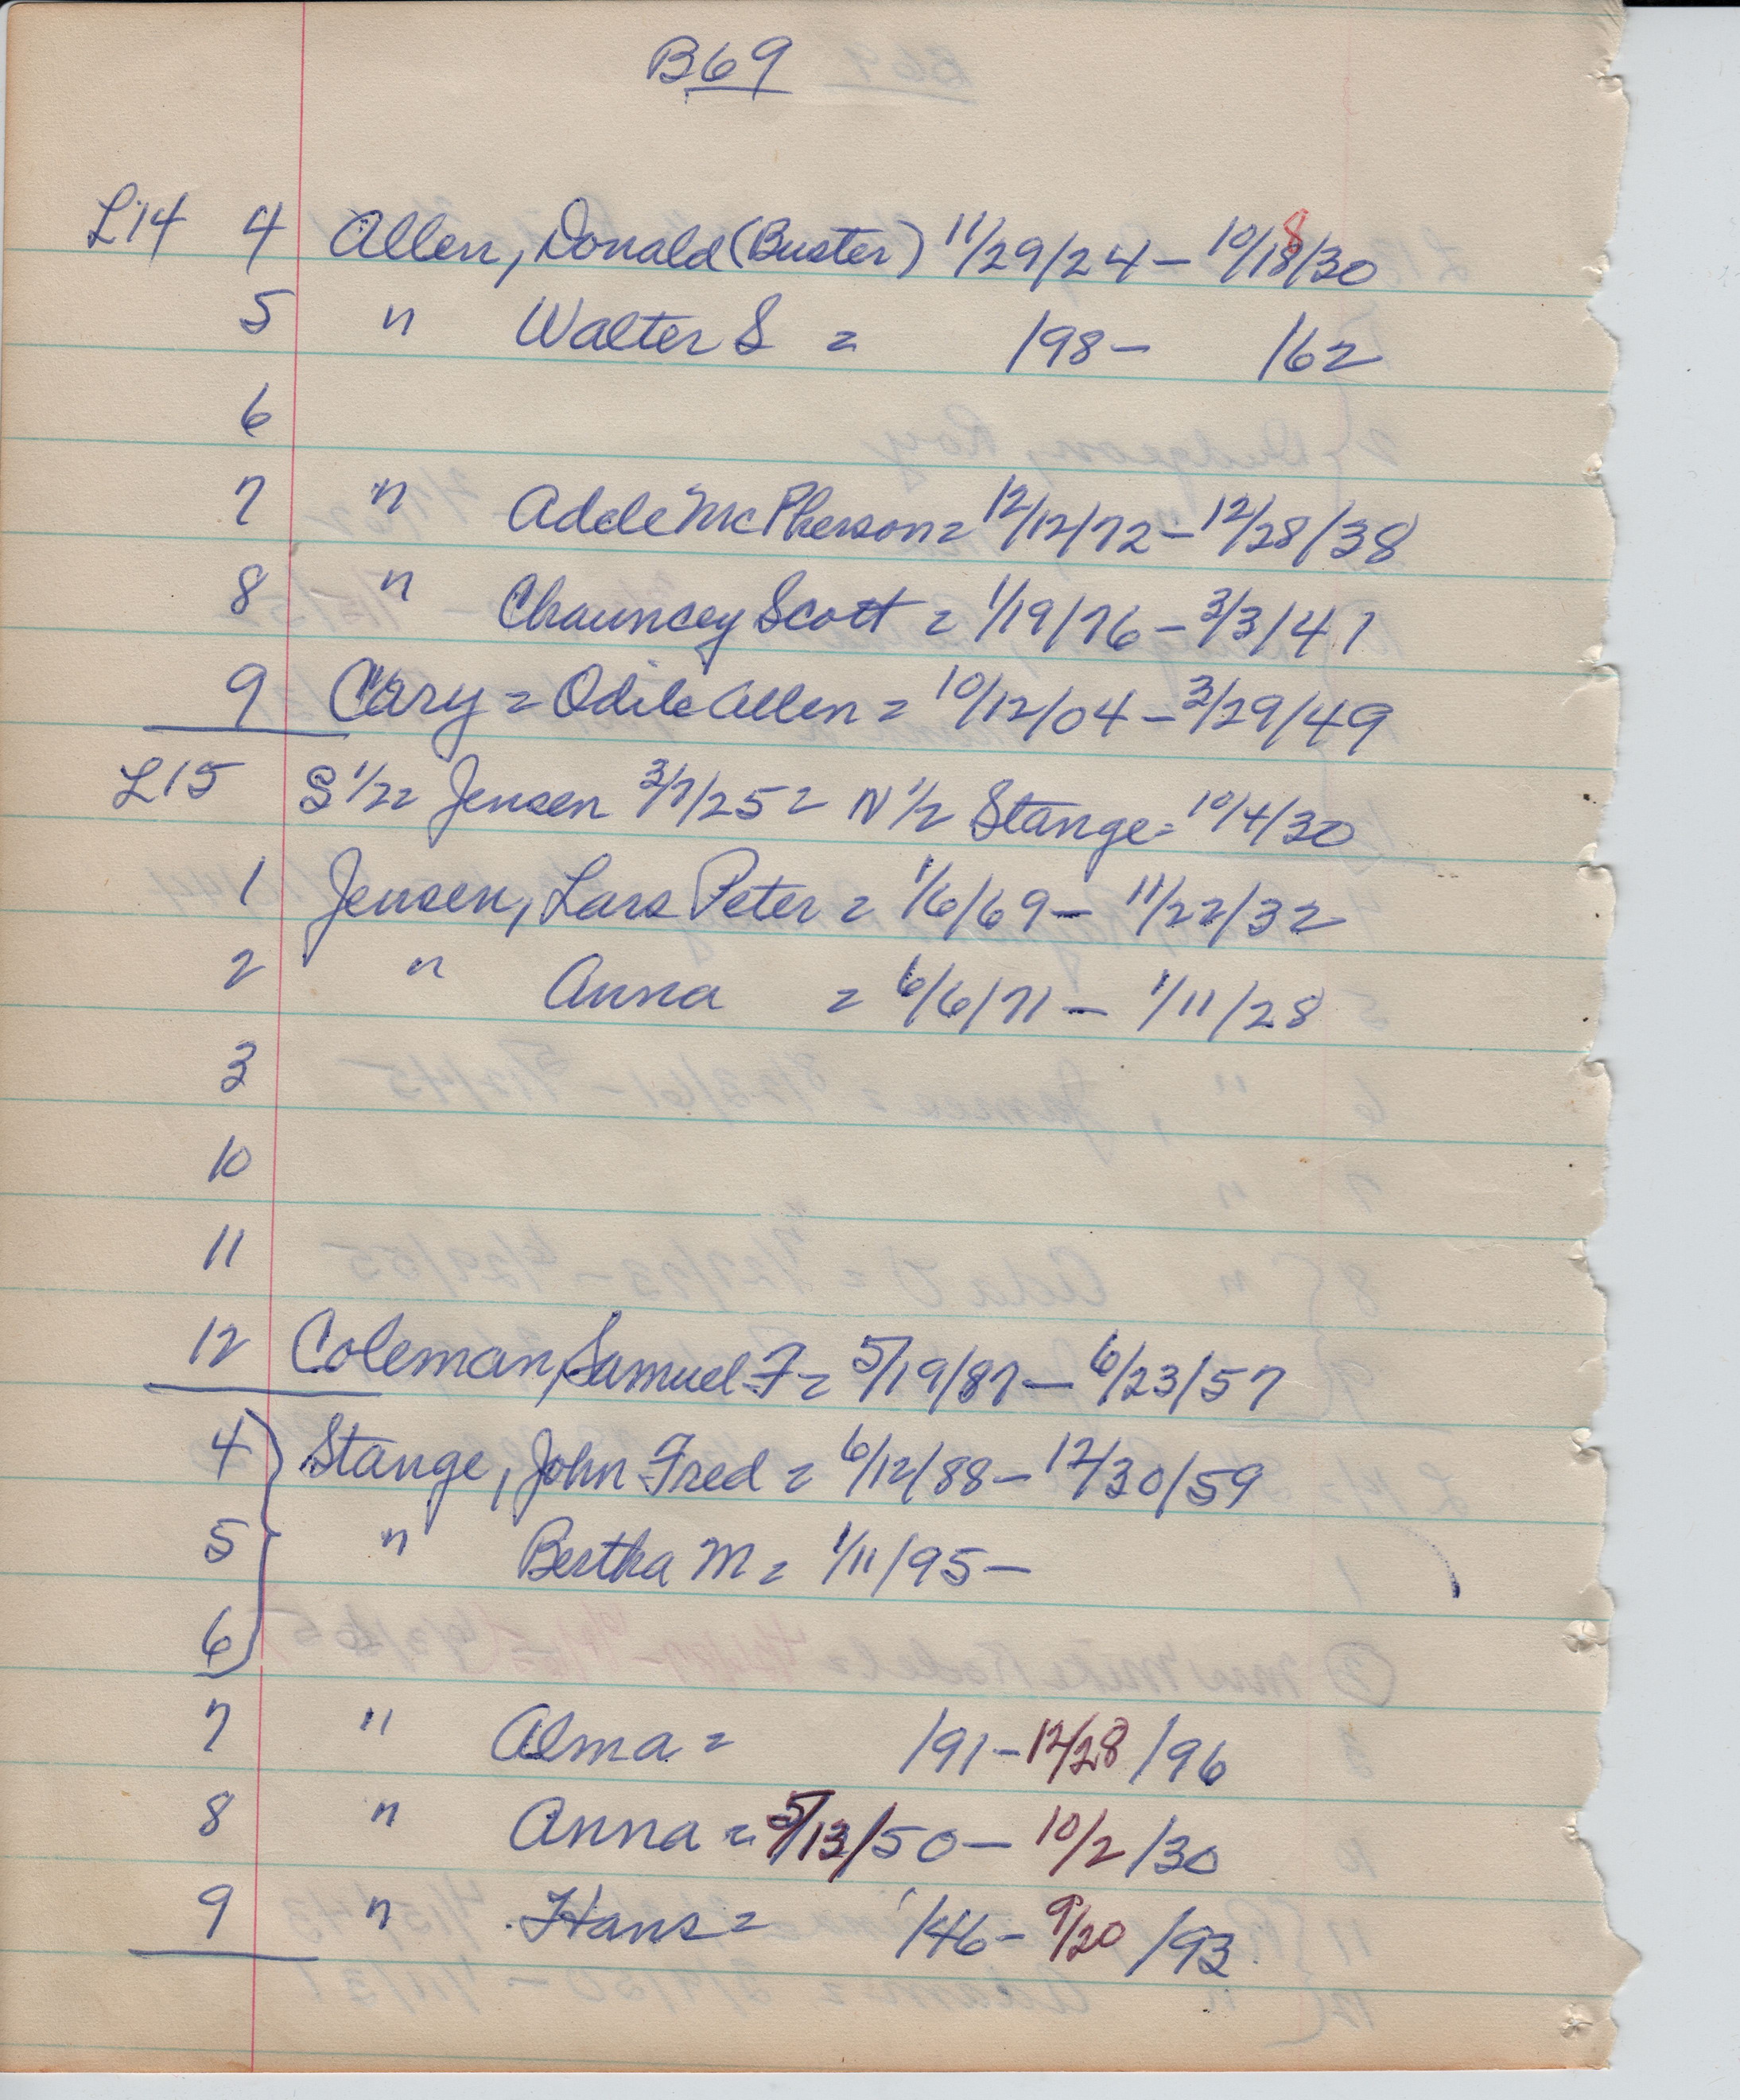 B69
L14 4 Allen, Donald (Buster) 11/29/24 – 10/18/30
5 " Walter S = /98 – /62
6
7 " Adele McPherson = 12/12/72 – 12/28/38
8 " Chauncey Scott = 1/19/76 – 3/3/41
9 Cary = Odile Allen = 10/12/04 – 3/29/49
L15 S 1/2 = Jensen 3/7/25 = N 1/2 Stange = 10/4/30
1 Jensen, Lars Peter = 1/6/69 – 11/22/32
2 " Anna = 6/6/71 – 1/11/28
3
10
11
12 Coleman, Samuel F = 5/19/87 – 6/23/57
4 Stange, John Fred = 6/12/88 – 12/30/59
5 " Bertha M = 1/11/95 –
6
7 " Alma = /91 – 12/28/96
8 " Anna = 5/13/50 – 10/2/30
9 " Hans = /46 – 9/20/93